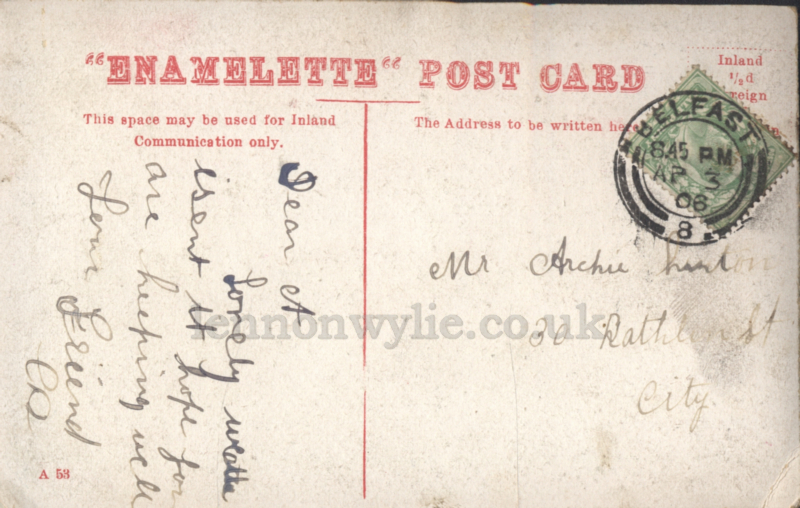 "ENAMELETTE" POST CARD
Inland
½d
reign
This space may be used for Inland
Communication only.
The Address to be written here
BELFAST
8.45 PM
AP 3
06
8
Dear A
Lovely weathe
isent it hope for
are keeping well
Your Freind
Mr Archie
30 Rathlin St
City
lennonwylie.co.uk
A 53